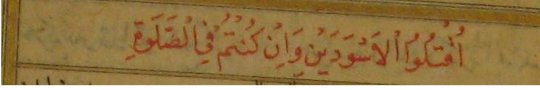 اُقْتُلُوا الْاَسْوَدَيْنِ وَاِنْ كُنْتُمْ فِي الصَّلَوةِ